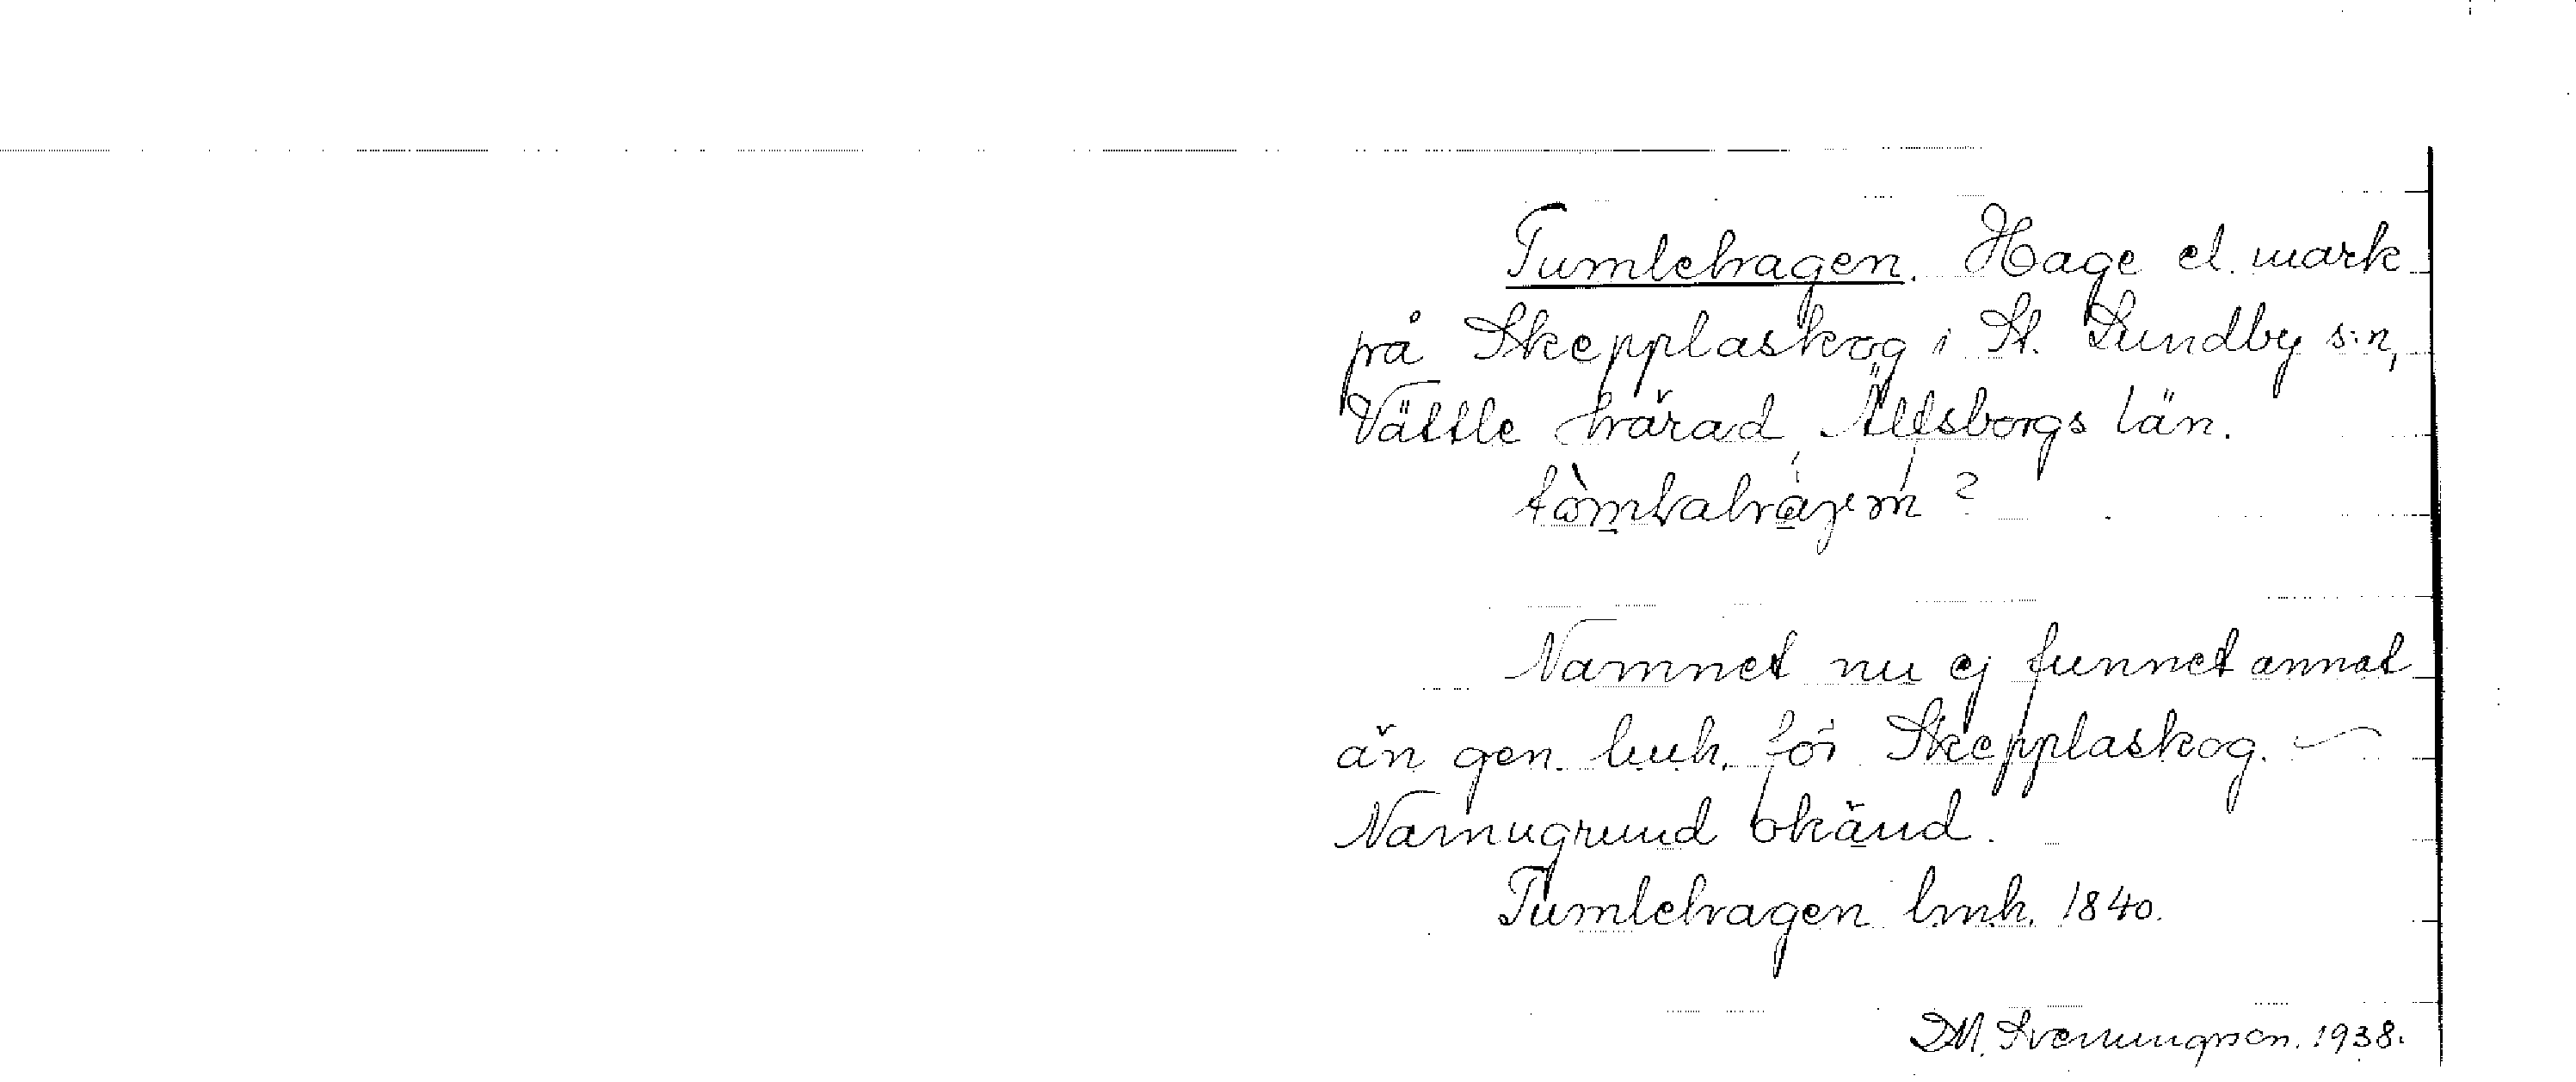 Tumlehagen. Hage el. mark
på Skepplaskog i St. Lundby s:n,
Vättle härad, Älfsborgs län.
Namnet nu ej funnet annat
än gen. lmh. för Skepplaskog.
Namngrund okänd.
Tumlehagen lmh. 1840.
D.M. Svenningsson. 1938.